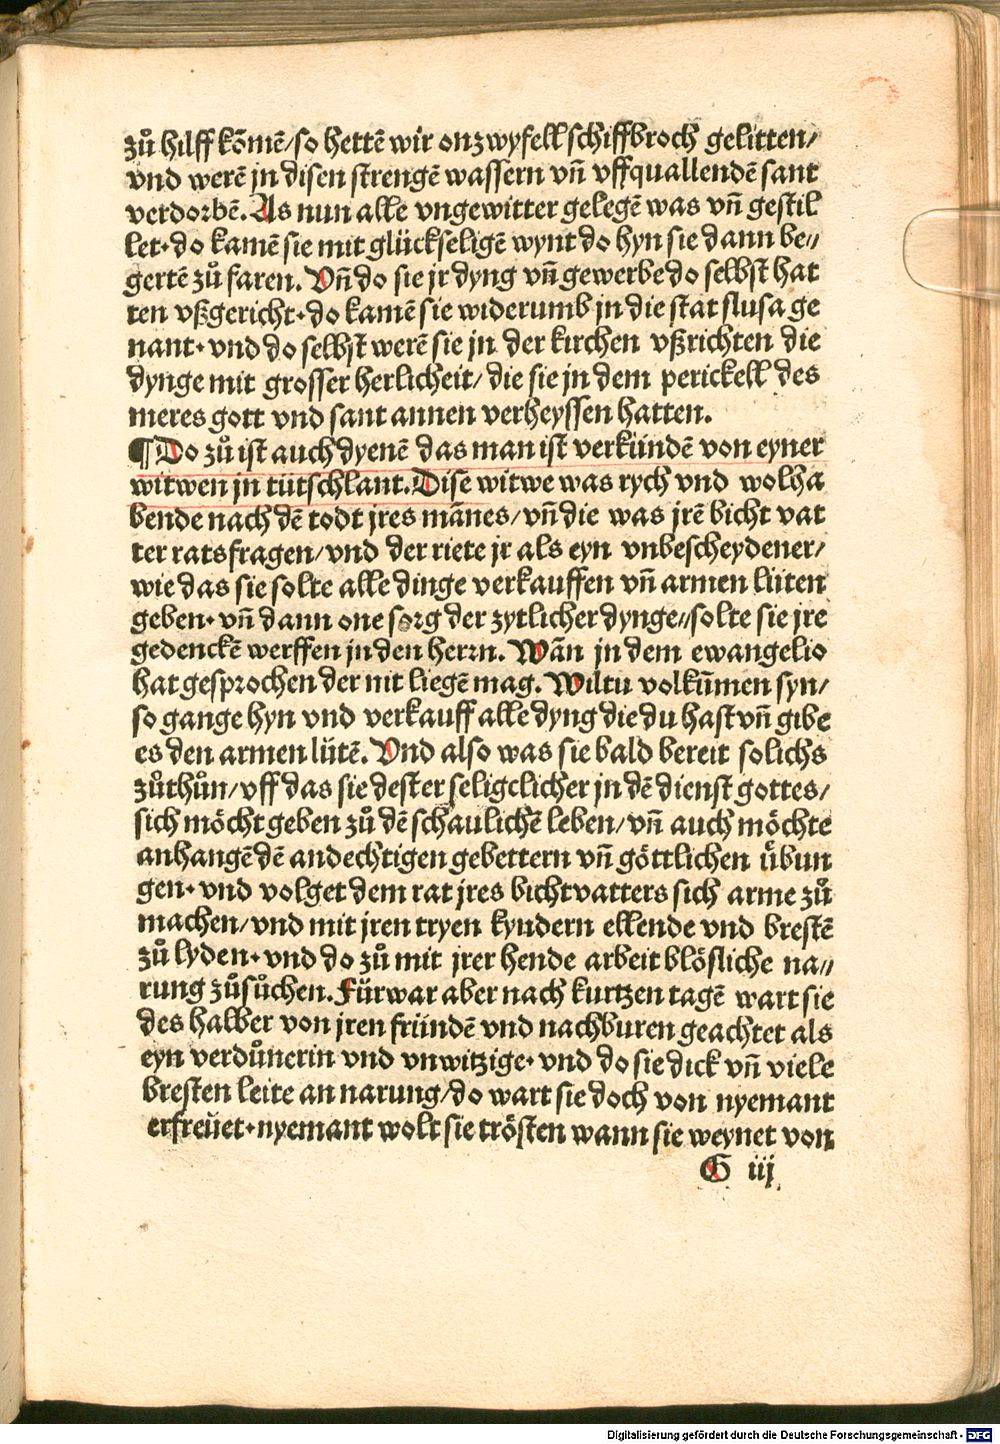 zuͦ hilff kōmē/so hettē wir onzwyfell schiffbroch gelitten/
vnd werē jn disen strengē wassern vn̄ vffquallendē sant
verdorbē. As nun alle vngewitter gelegē was vn̄ gestil
let· do kamē sie mit glückseligē wynt do hyn sie dann be⸗
gertē zuͦ faren. Vn̄ do sie jr dyng vn̄ gewerbe do selbst hat
ten vßgericht· do kamē sie widerumb jn die stat slusa ge
nant· vnd do selbst werē sie jn der kirchen vßrichten die
dynge mit grosser herlicheit/ die sie jn dem perickell des
meres gott vnd sant annen verheyssen hatten.
¶ Do zuͦ ist auch dyenē das man ist verkündē von eyner
witwen jn tütschlant. Dise witwe was rych vnd wolha
bende nach dē todt jres mānes/ vn̄ die was jrē bicht vat
ter ratsfragen/ vnd der riete jr als eyn vnbescheydener/
wie das sie solte alle dinge verkauffen vn̄ armen lüten
geben· vn̄ dann one sorg der zytlicher dynge⸗/solte sie jre
gedenckē werffen jn den herrn. Wān jn dem ewangelio
hat gesprochen der nit liegē mag. Wiltu volkūmen syn/
so gange hyn vnd verkauff alle dyng die du hast vn̄ gibe
es den armen lütē. Vnd also was sie bald bereit solichs
zuͦthuͦn/ vff das sie dester seligclicher jn dē dienst gottes/
sich möcht geben zuͦ dē schaulichē leben/ vn̄ auch möchte
anhangē dē andechtigen gebettern vn̄ göttlichen übun
gen· vnd volget dem rat jres bichtvatters sich arme zuͦ
machen/ vnd mit jren tryen kyndern ellende vnd brestē
zuͦ lyden· vnd do zuͦ mit jrer hende arbeit blösliche na⸗
rung zuͦsuͦchen. Fürwar aber nach kurtzen tagē wart sie
des halber von jren fründē vnd nachburen geachtet als
eyn verduͦnerin vnd vnwitzige· vnd do sie dick vn̄ viele
bresten leite an narung/ do wart sie doch von nyemant
erfreüet· nyemant wolt sie trösten wann sie weynet von
G iij
Digitalisierung gefördert durch die Deutsche Forschungsgemeinschaft - DFG